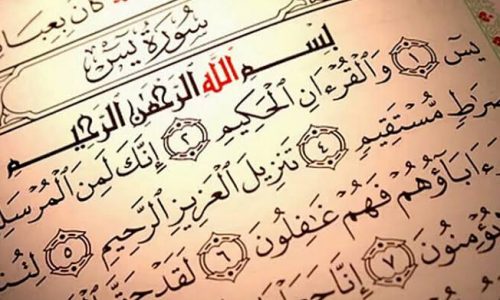 كَانَ بِعِبَا
سُورَةُ يسٓ
بِسْمِ اللَّهِ الرَّحْمَٰنِ الرَّحِيمِ
يسٓ ١ وَالْقُرْءَانِ الْحَكِيمِ ٢ إِنَّكَ لَمِنَ الْمُرْسَلِ
صِرَٰطٍ مُّسْتَقِيمٍ ٤ تَنزِيلَ الْعَزِيزِ الرَّحِيمِ ٥ لِتُن
ءَابَآؤُهُمْ فَهُمْ غَٰفِلُونَ ٦ لَقَدْ حَقَّ
يُؤْمِنُونَ ٧ إِنَّا جَعَلْ